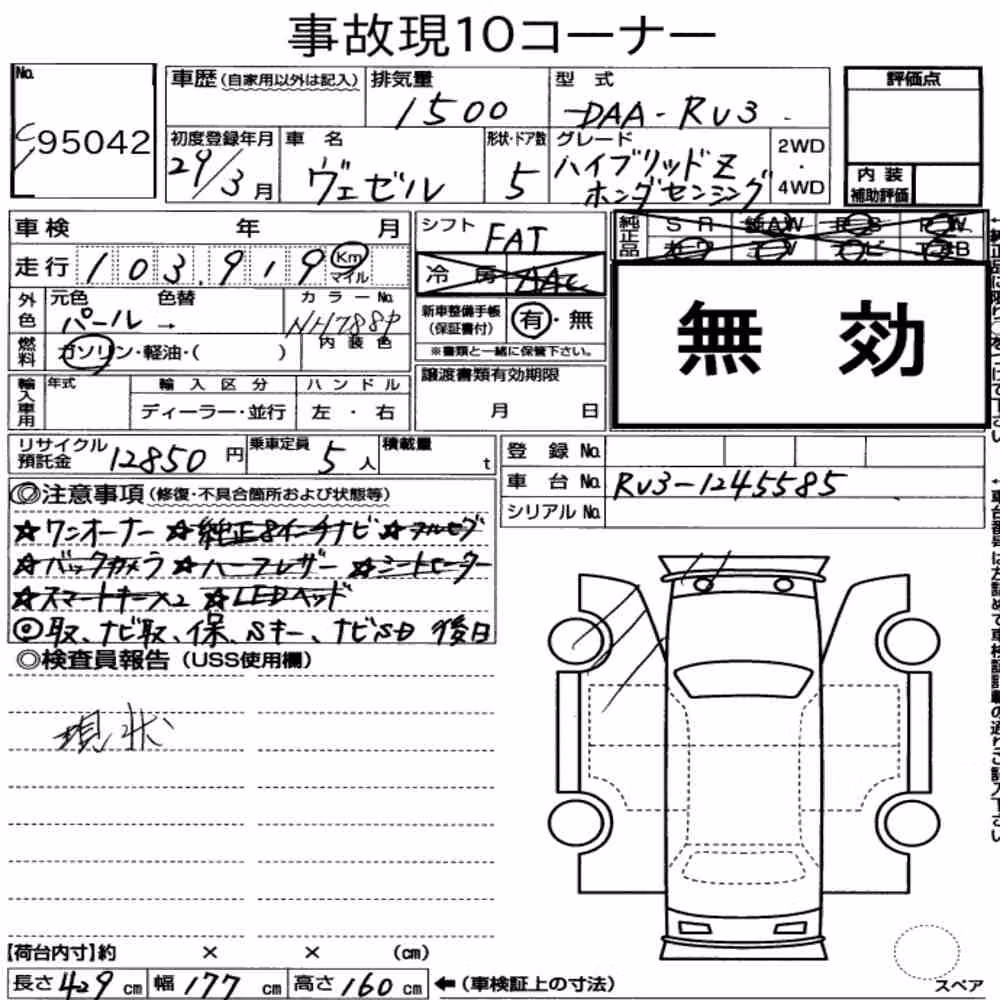 事故現10コーナー
No.
C/95042
車歴（自家用以外は記入） 排気量 1500 型式 DAA-RU3 評価点
初度登録年月 29/3月 車名 ヴェゼル 形状・ドア数 5 グレード ハイブリッドZ ホンダセンシング 2WD・4WD
内装補助評価
車検 年 月
走行 103,919 Km マイル
シフト FAT
冷房 AAC
純正品 SR 純AW PS PW
カワ TV ナビ エアB
外色 元色 パール → 色替 カラーNo. NH788P
内装色
燃料 ガソリン・軽油・( )
新車整備手帳（保証書付） 有・無
※書類と一緒に保管下さい。
無効
輸入車用 年式 輸入区分 ディーラー・並行 ハンドル 左・右
譲渡書類有効期限 月 日
リサイクル預託金 12850円 乗車定員 5人 積載量 t
登録No.
車台No. RU3-1245585
シリアルNo.
◎注意事項（修復・不具合箇所および状態等）
☆ワンオーナー ☆純正8インチナビ ☆フルセグ
☆バックカメラ ☆ハーフレザー ☆シートヒーター
☆スマートキー×2 ☆LEDヘッド
◎取、ナビ取、保、Sキー、ナビSD 後日
◎検査員報告（USS使用欄）
現状
【荷台内寸】約 × × （cm）
長さ 429 cm 幅 177 cm 高さ 160 cm ←（車検証上の寸法）
スペア